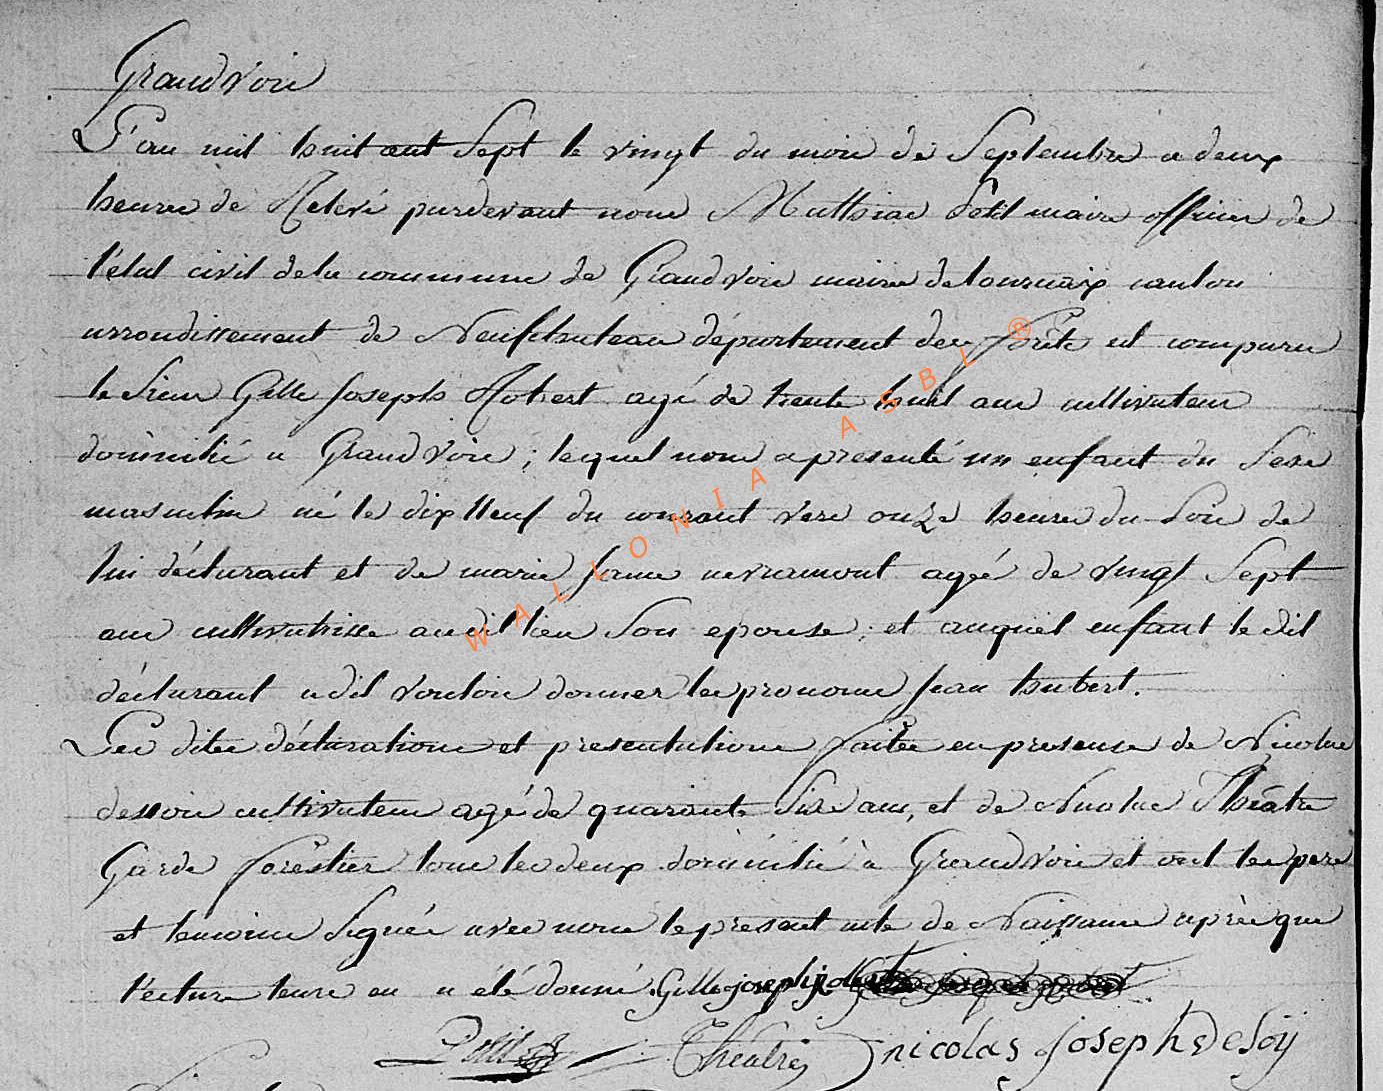 Grandvoir
L'an mil huit cent Sept le vingt du mois de Septembre a deux
heures de Relevé pardevant nous Mathias Petit maire officier de
l'état civil dela commune de Grandvoir mairie de tournaix canton
arrondissement de Neufchateau département des forêts est comparu
le Sieur Gille Joseph Robert agé de trente huit ans cultivateur
domicilié a Grandvoir ; lequel nous a presenté un enfant du Sexe
masculin né le dix Neuf du courant vers onze heures du Soir de
lui déclarant et de marie Jeanne nevramont agée de vingt Sept
ans cultivatrice audit lieu Son epouse ; et auquel enfant le dit
déclarant adit vouloir donner les prenoms Jean hubert.
Les dites déclarations et presentations faites en presence de Nicolas
dessoie cultivateur agé de quarante Sixe ans, et de Nicolas Théâtre
Garde forestier tous les deux domicilié à Grandvoir et ont les pere
et temoins Signés avec nous le present acte de Naissance après que
l'ecture leurs en a été donné. Gille joseph robert
Petit Théatre nicolas Joseph deSoij
WALLONIA ASBL ®